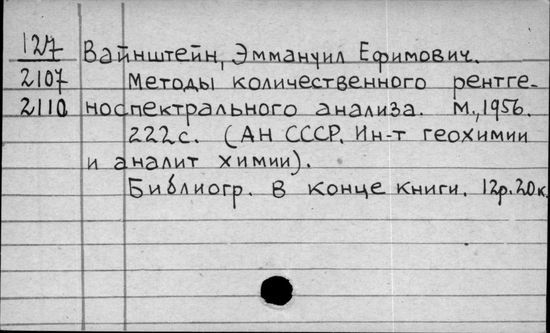 127 Вайнштейн, Эммануил Ефимович.
2107 Методы количественного рентге-
2110 носпектрального анализа. М., 1956.
222 с. (АН СССР. Ин-т геохимии
и аналит химии).
Библиогр. в конце книги. 12р.20к.